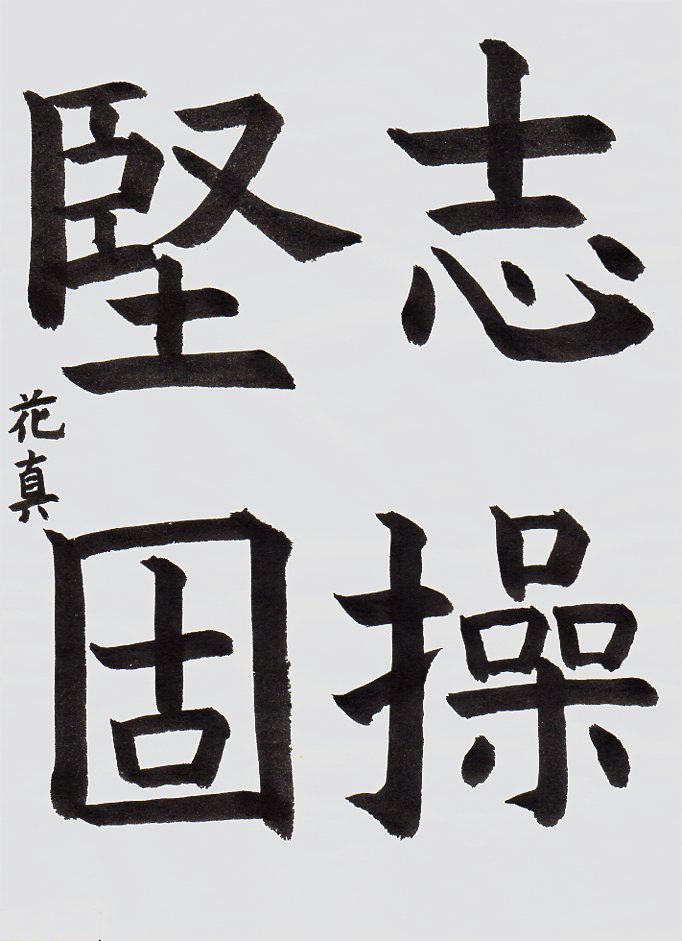 志操
堅固
花真